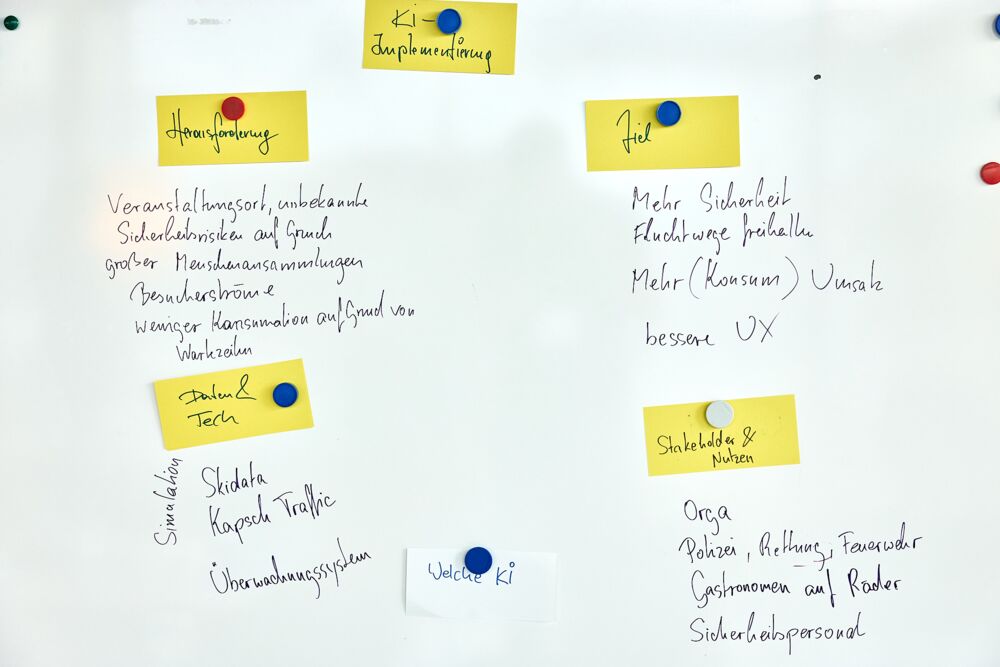 Ki-
Implementierung
Herausforderung
Veranstaltungsort, unbekannte
Sicherheitsrisiken auf Grund
großer Menschenansammlungen
Besucherströme
weniger Konsumation auf Grund von
Wartezeiten
Ziel
Mehr Sicherheit
Fluchtwege freihalten
Mehr (Konsum) Umsatz
bessere UX
Daten &
Tech
Simulation
Skidata
Kapsch Traffic
Überwachungssystem
Welche Ki
Stakeholder &
Nutzen
Orga
Polizei, Rettung, Feuerwehr
Gastronomen auf Räder
Sicherheitspersonal